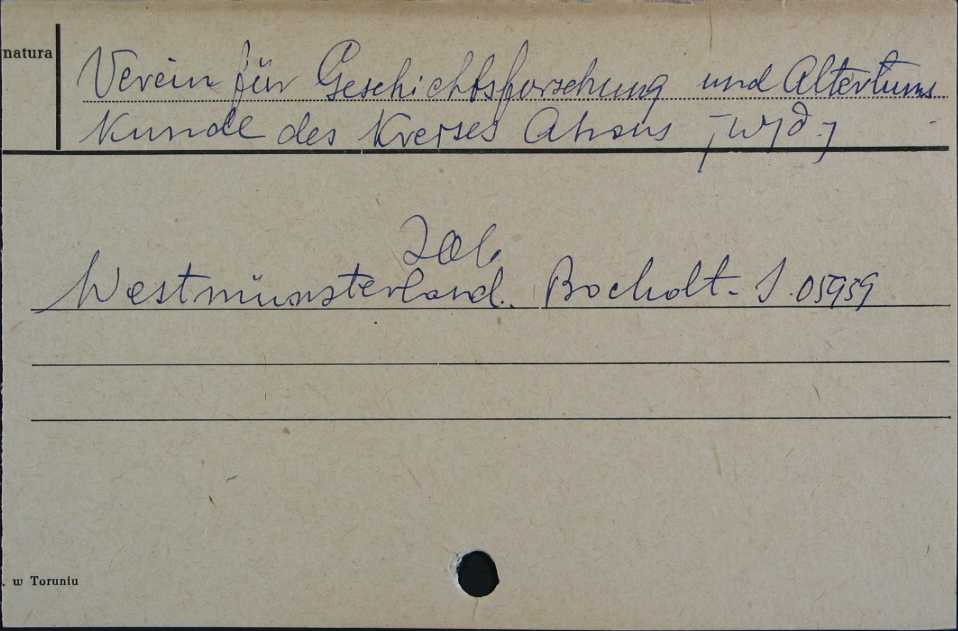 natura
Verein für Geschichtsforschung und Altertums
Kunde des Kreises Ahaus [Wyd.]
Zob.
Westmünsterland. Bocholt. S. 05959
. w Toruniu